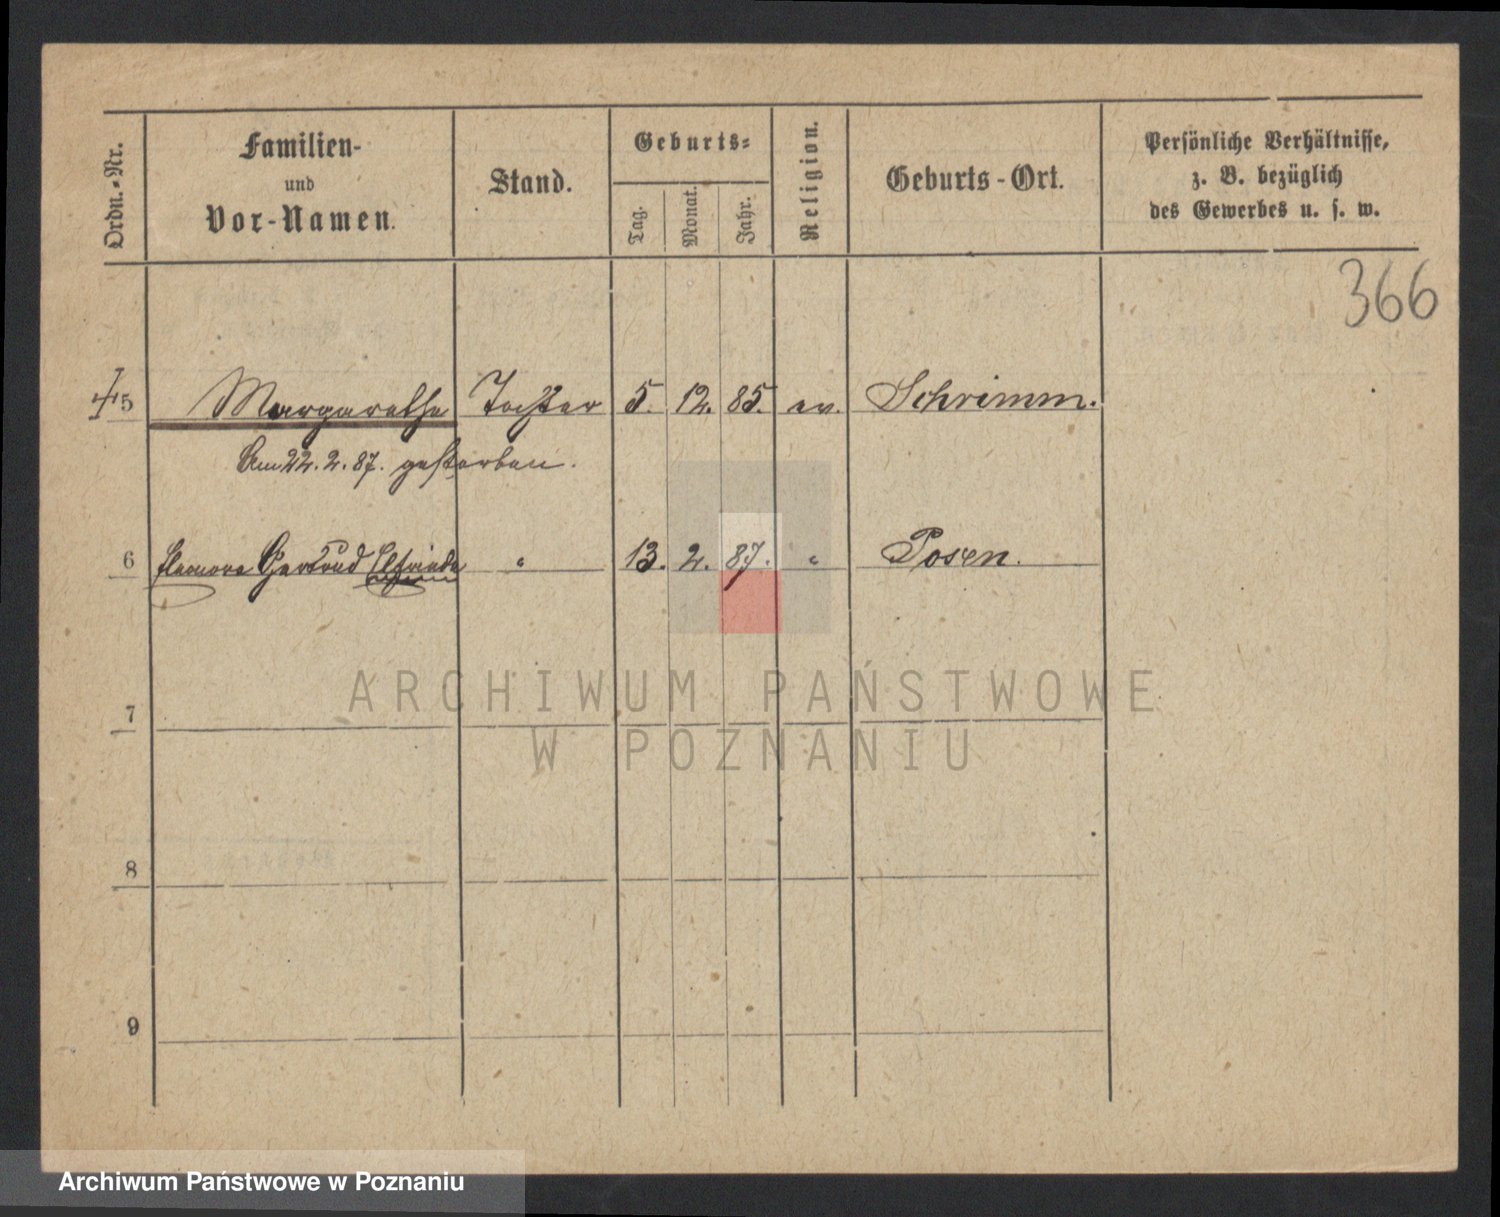 Ordn.-Nr.
Familien-
und
Vor-Namen.
Stand.
Geburts-
Tag.
Monat.
Jahr.
Religion.
Geburts-Ort.
Persönliche Verhältnisse,
z. B. bezüglich
des Gewerbes u. s. w.
366
5 Margarethe Tochter 5. 12. 85. ev. Schrimm.
Am 22. 2. 87. gestorben.
6 Eleonore Gertrud Elfriede " 13. 2. 87. " Posen.
7
8
9
ARCHIWUM PAŃSTWOWE
W POZNANIU
Archiwum Państwowe w Poznaniu